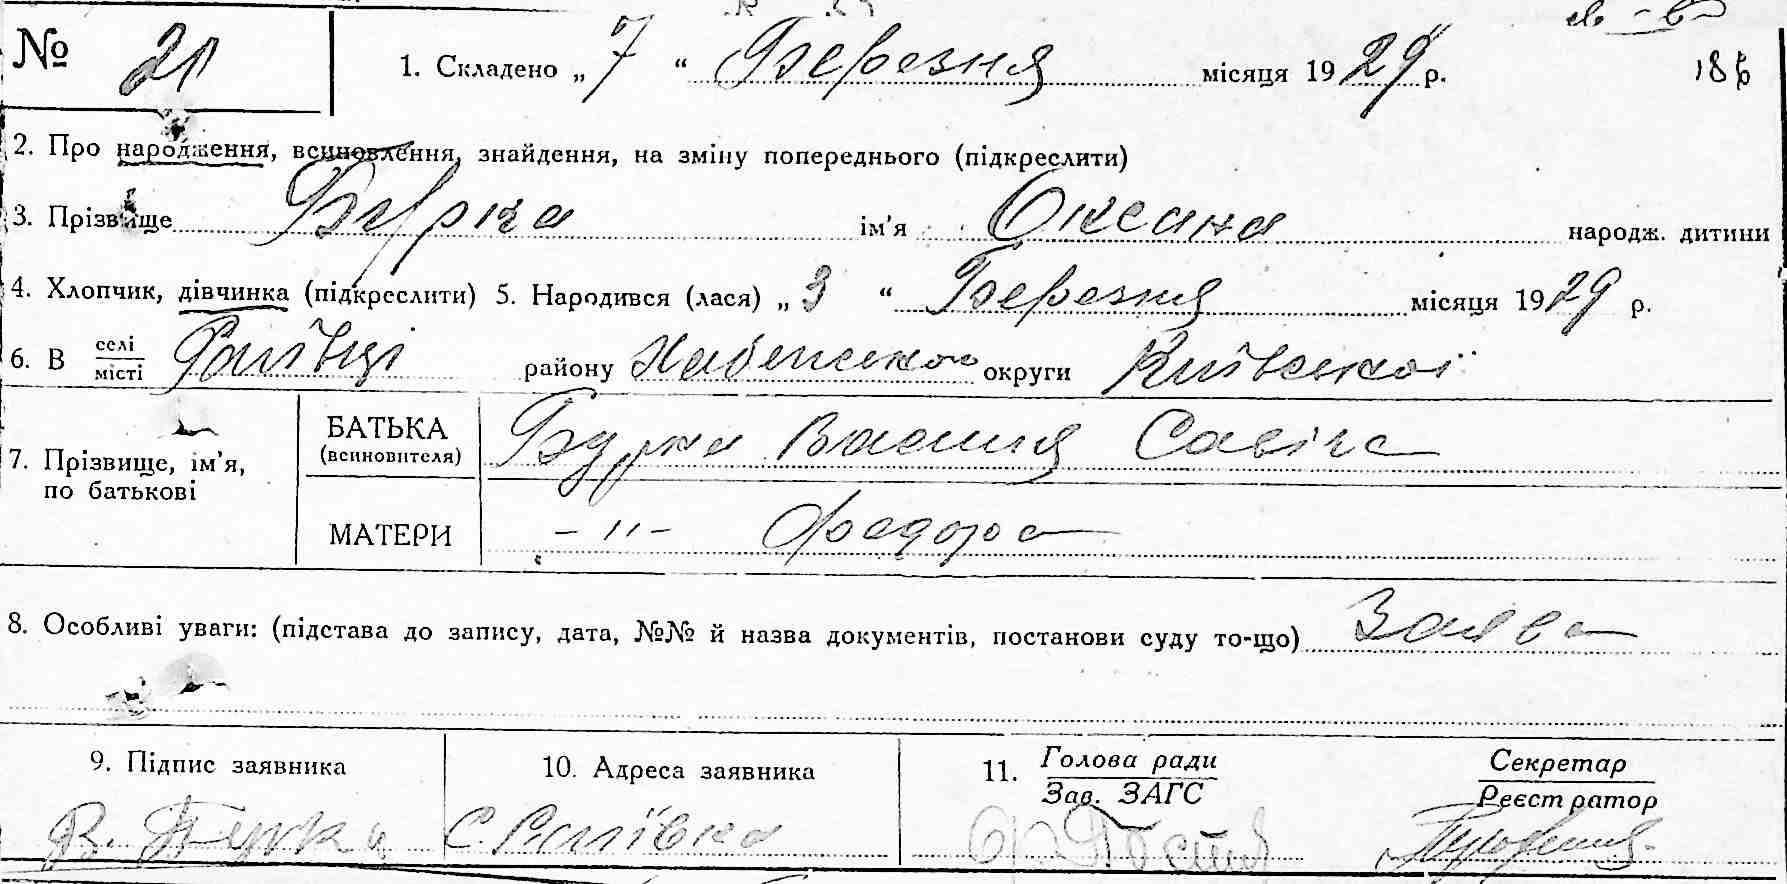 № 21 1. Складено „ 7 “ Березня місяця 1929 р. 186
2. Про народження, всиновлення, знайдення, на зміну попереднього (підкреслити)
3. Прізвище Бурка ім'я Оксана народж. дитини
4. Хлопчик, дівчинка (підкреслити) 5. Народився (лася) „ 3 “ Березня місяця 1929 р.
6. В селі місті району Хабенського округи Київської
7. Прізвище, ім'я, по батькові
БАТЬКА (всиновителя) Бурка Василя Савіча
МАТЕРИ -"- Федора
8. Особливі уваги: (підстава до запису, дата, №№ й назва документів, постанови суду то-що) Заява
9. Підпис заявника 10. Адреса заявника 11. Голова ради Секретар
Зав. ЗАГС Реєстратор
В. Бурка С.